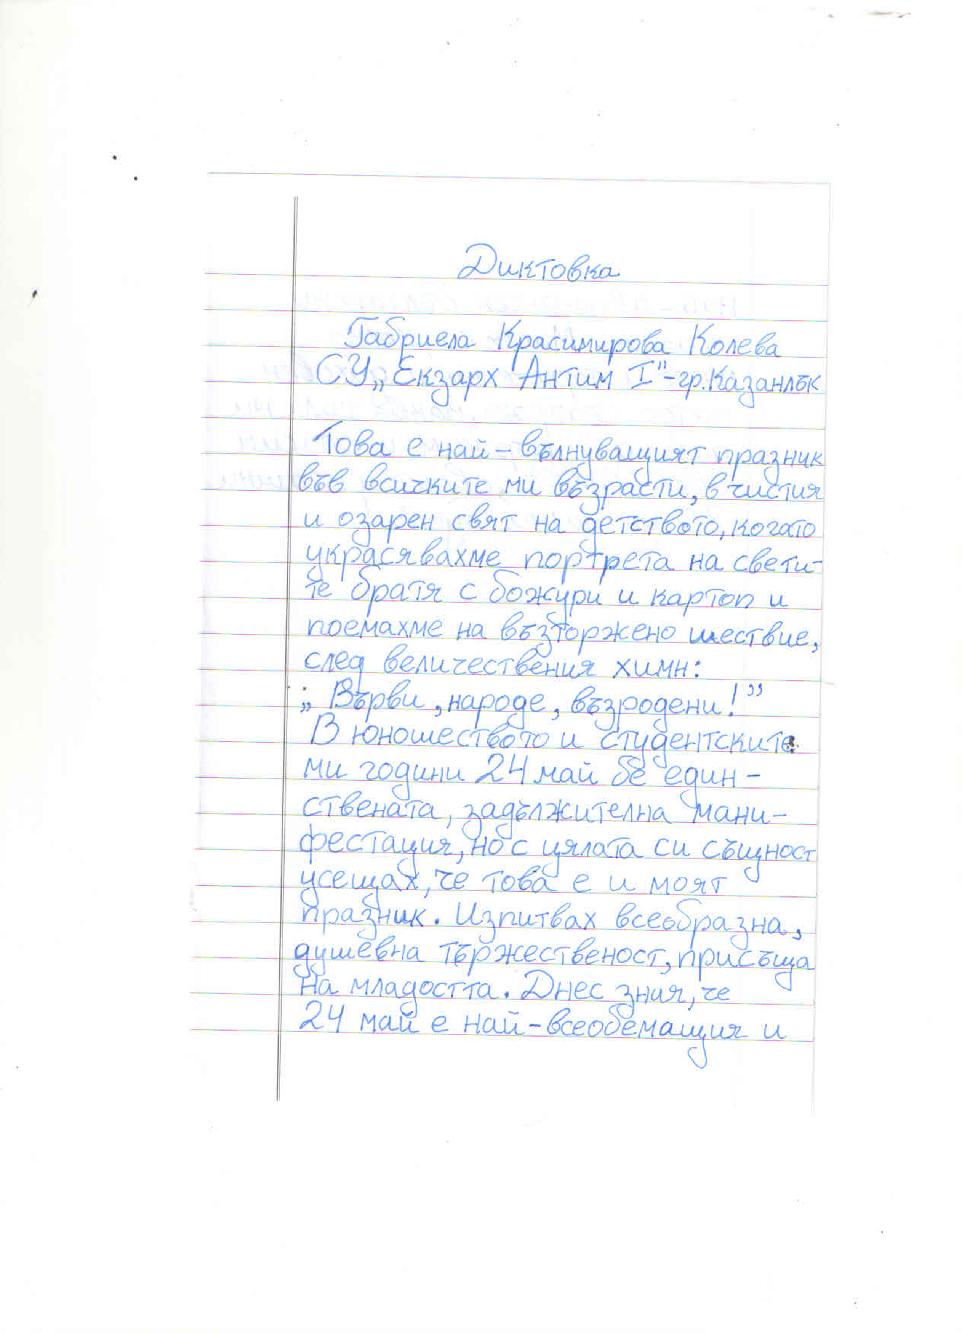 Диктовка
Габриела Красимирова Колева
СУ „Екзарх Антим I"-гр.Казанлък
Това е най-вълнуващият празник
във всичките ми възрасти, в чистия
и озарен свят на детството, когато
украсявахме портрета на свети-
те братя с божури и картоп и
поемахме на възторжено шествие,
след величествения химн:
„Върви, народе, възродени!"
В юношеството и студентските
ми години 24 май бе един-
ствената, задължителна мани-
фестация, но с цялата си същност
усещах, че това е и моят
празник. Изпитвах всеобразна,
душевна тържественост, присъща
на младостта. Днес зная, че
24 май е най-всеобемащия и